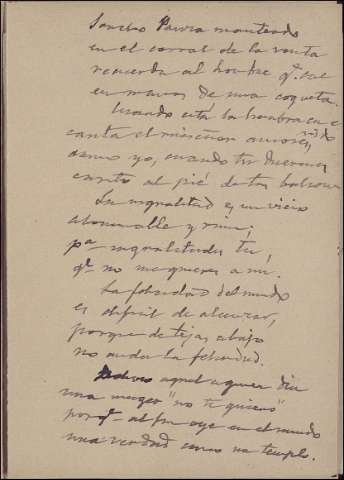 Sancho Panza manteado
en el corral de la venta
recuerda al hombre qe. cae
en manos de una coqueta.
Cuando está la hembra en el nido
canta el ruiseñor amores,
como yo, cuando tu duermes
canto al pié de tus balcones
La ingratitud es un vicio
abominable y ruin;
pa. ingratitudes tu,
qe. no me quieres a mi.
La felicidad del mundo
es dificil de alcanzar,
porque de tejas abajo
no anda la felicidad.
aquel a quien dice
una mujer "no te quiero"
porqe. al fin oye en el mundo
una verdad como un templo.